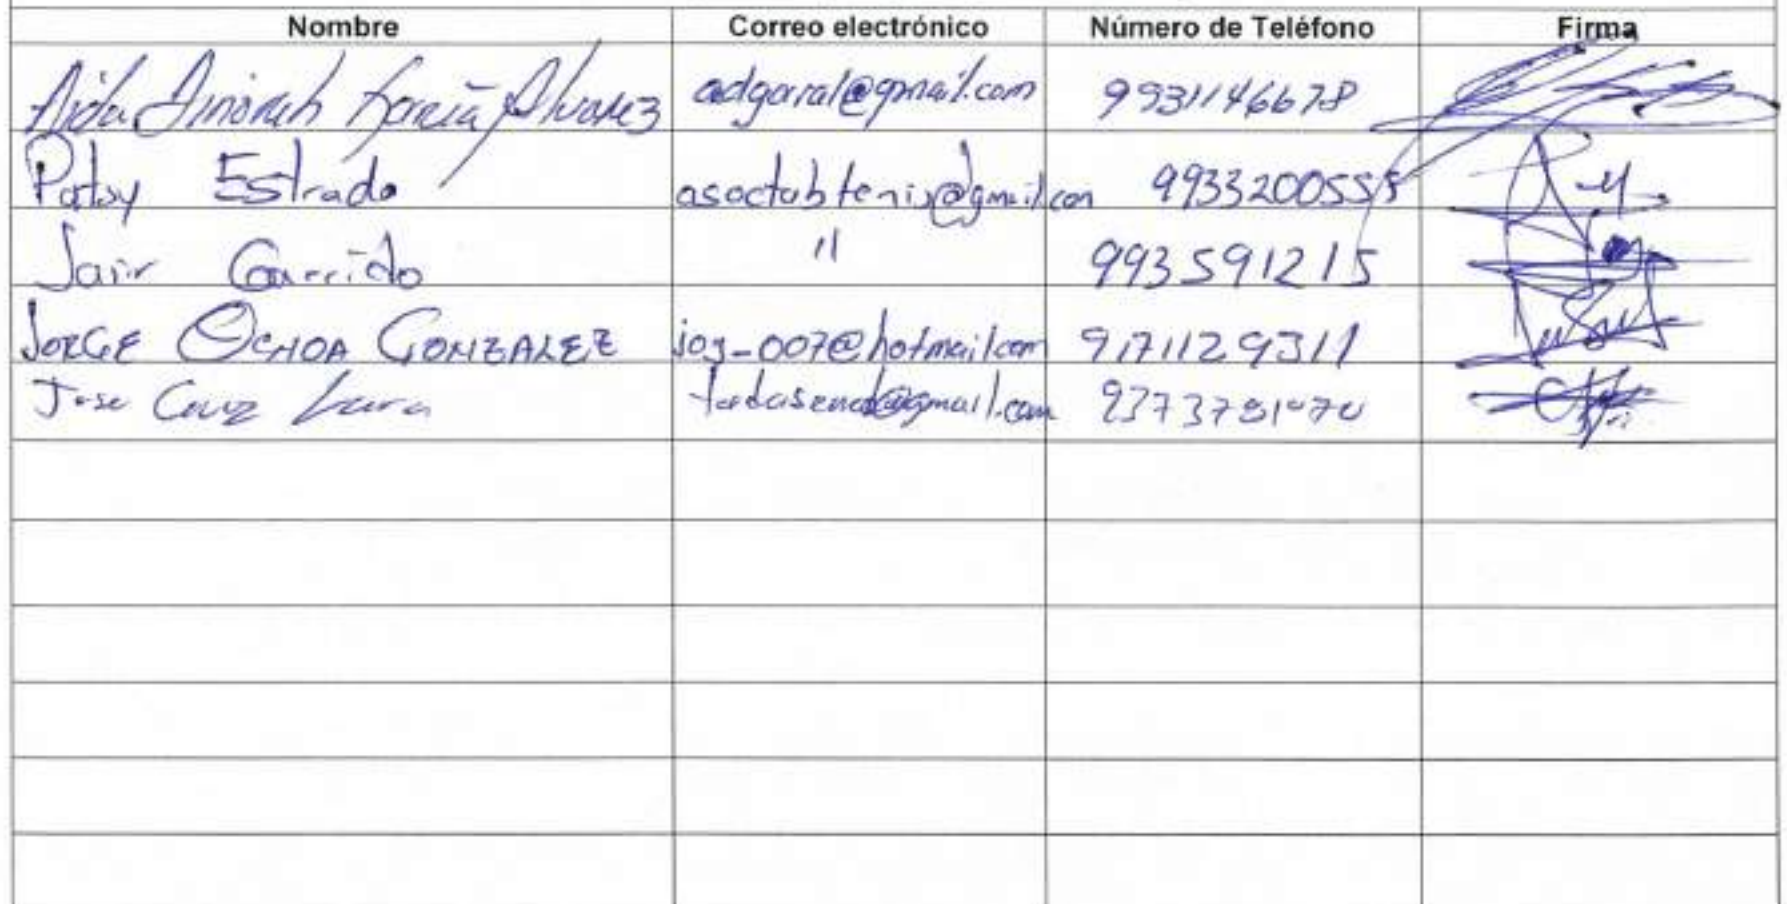 Nombre Correo electrónico Número de Teléfono Firma
Aida Dinorah García Alvarez adgaral@gmail.com 9931146678
Patsy Estrada asoctabtenis@gmail.com 9933200555
Jair Garrido " 993591215
JORGE OCHOA GONZALEZ jog_007@hotmail.com 9171129311
Jose Cruz Lara